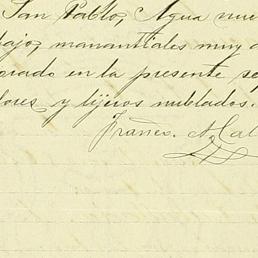 San Pablo, Agua nue
bajo, manantiales muy a
orado en la presente se
lores y lijeros nublados.
Franco. A. Cal